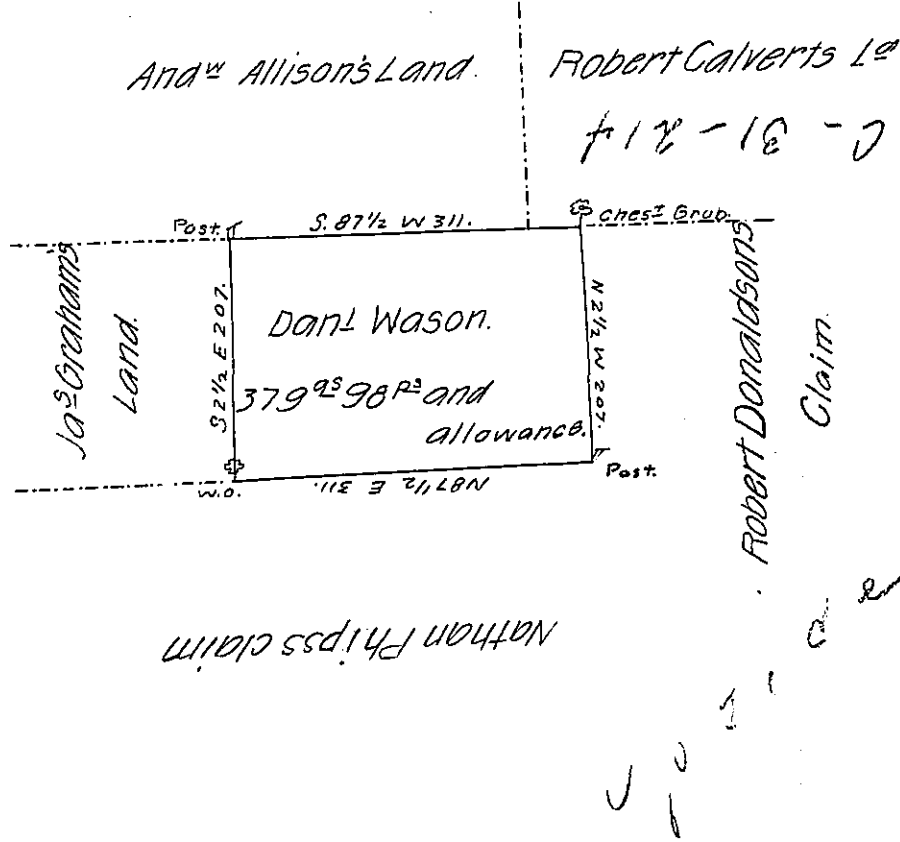 Andw Allison's Land. Robert Calverts Ld
C-31-214
Post. S. 87½ W 311. chest Grub.
Jas Graham's
Land.
S 2½ E 207.
Danl Wason.
379as 98ps and
allowance.
N 2½ W 207.
Robert Donaldsons
Claim.
W.O. N87½ E 311. Post.
Nathan Phipss claim